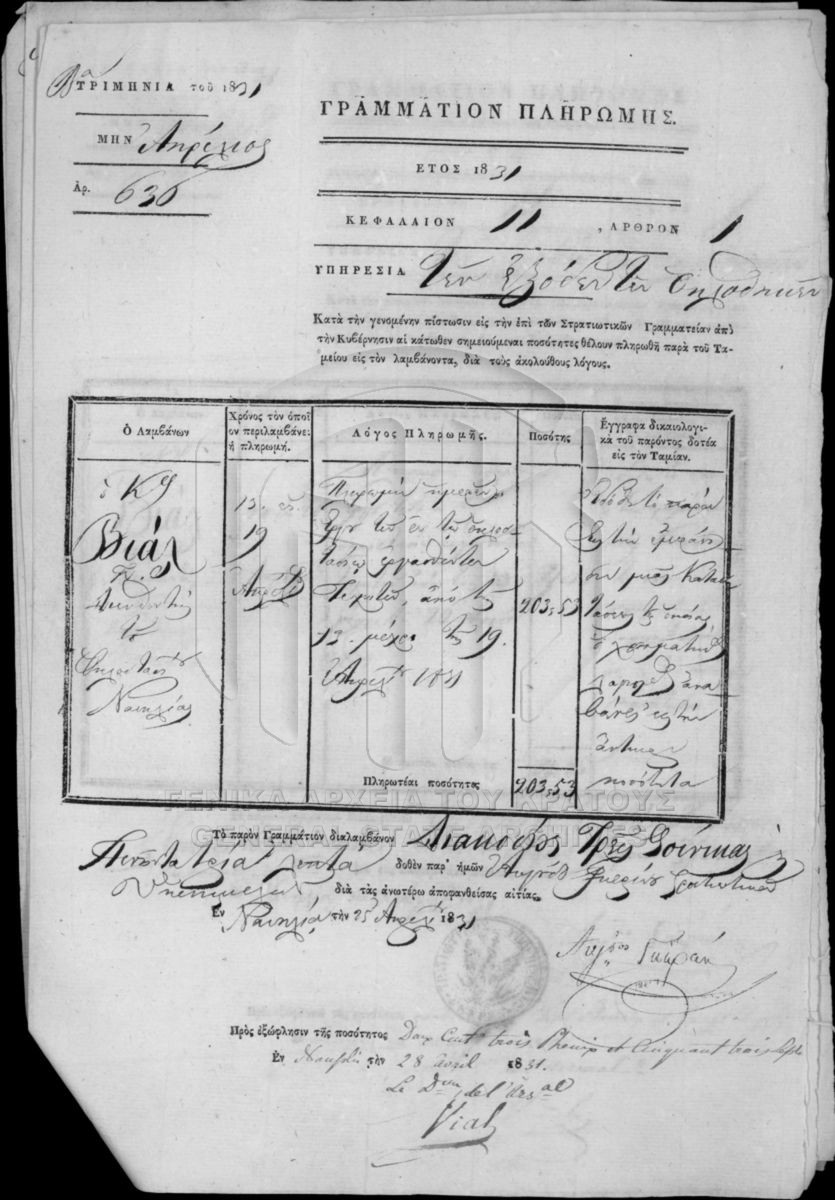 Βα ΤΡΙΜΗΝΙΑ τοῦ 1831
ΜΗΝ Ἀπρίλιος
Ἀρ. 636
ΓΡΑΜΜΑΤΙΟΝ ΠΛΗΡΩΜΗΣ.
ΕΤΟΣ 1831
ΚΕΦΑΛΑΙΟΝ 11 , ΑΡΘΡΟΝ 1
ΥΠΗΡΕΣΙΑ Τῶν Ἐξόδων τῶν ὁπλοθηκῶν
Κατὰ τὴν γενομένην πίστωσιν εἰς τὴν ἐπὶ τῶν Στρατιωτικῶν Γραμματείαν ἀπὸ
τὴν Κυβέρνησιν αἱ κάτωθεν σημειούμεναι ποσότητες θέλουν πληρωθῆ παρὰ τοῦ Τα-
μείου εἰς τὸν λαμβάνοντα, διὰ τοὺς ἀκολούθους λόγους.
Ὁ Λαμβάνων
Χρόνος τὸν ὁποῖ
ον περιλαμβάνει
ἡ πληρωμή.
Λόγος Πληρωμῆς.
Ποσότης
Ἔγγραφα δικαιολογι-
κὰ τοῦ παρόντος δοτέα
εἰς τὸν Ταμίαν.
ὁ Κς
Βιάλ
Διευθυντὴς
τοῦ
Ὁπλοστασίου
Ναυπλίας
13. ἕως
19
Ἀπριλίου
Πληρωμὴ ἡμερομι-
ἐργασθέντων
ἀπὸ τὰς
13. μέχρι τὰς 19.
Ἀπριλίου 1831
203,53
εἰς τὴν
ἀντικρυ
ποσότητα
Πληρωτέαι ποσότητες 203,53
ΓΕΝΙΚΑ ΑΡΧΕΙΑ ΤΟΥ ΚΡΑΤΟΥΣ
GENERAL STATE ARCHIVES
Τὸ παρὸν Γραμμάτιον διαλαμβάνον Διακοσίους Τρεῖς Φοίνικας καὶ
Πενῆντα τρία λεπτὰ δοθὲν παρ' ἡμῶν
διὰ τὰς ἀνωτέρω ἀποφανθείσας αἰτίας.
Ἐν Ναυπλίᾳ τὴν 25 Ἀπριλίου 1831
Πρὸς ἐξώφλησιν τῆς ποσότητος Deux Cent trois Phenix et Cinquant trois Lepta
Ἐν Nauplie τὴν 28 avril 1831.
Le Dteur de l'Arsal
Vial